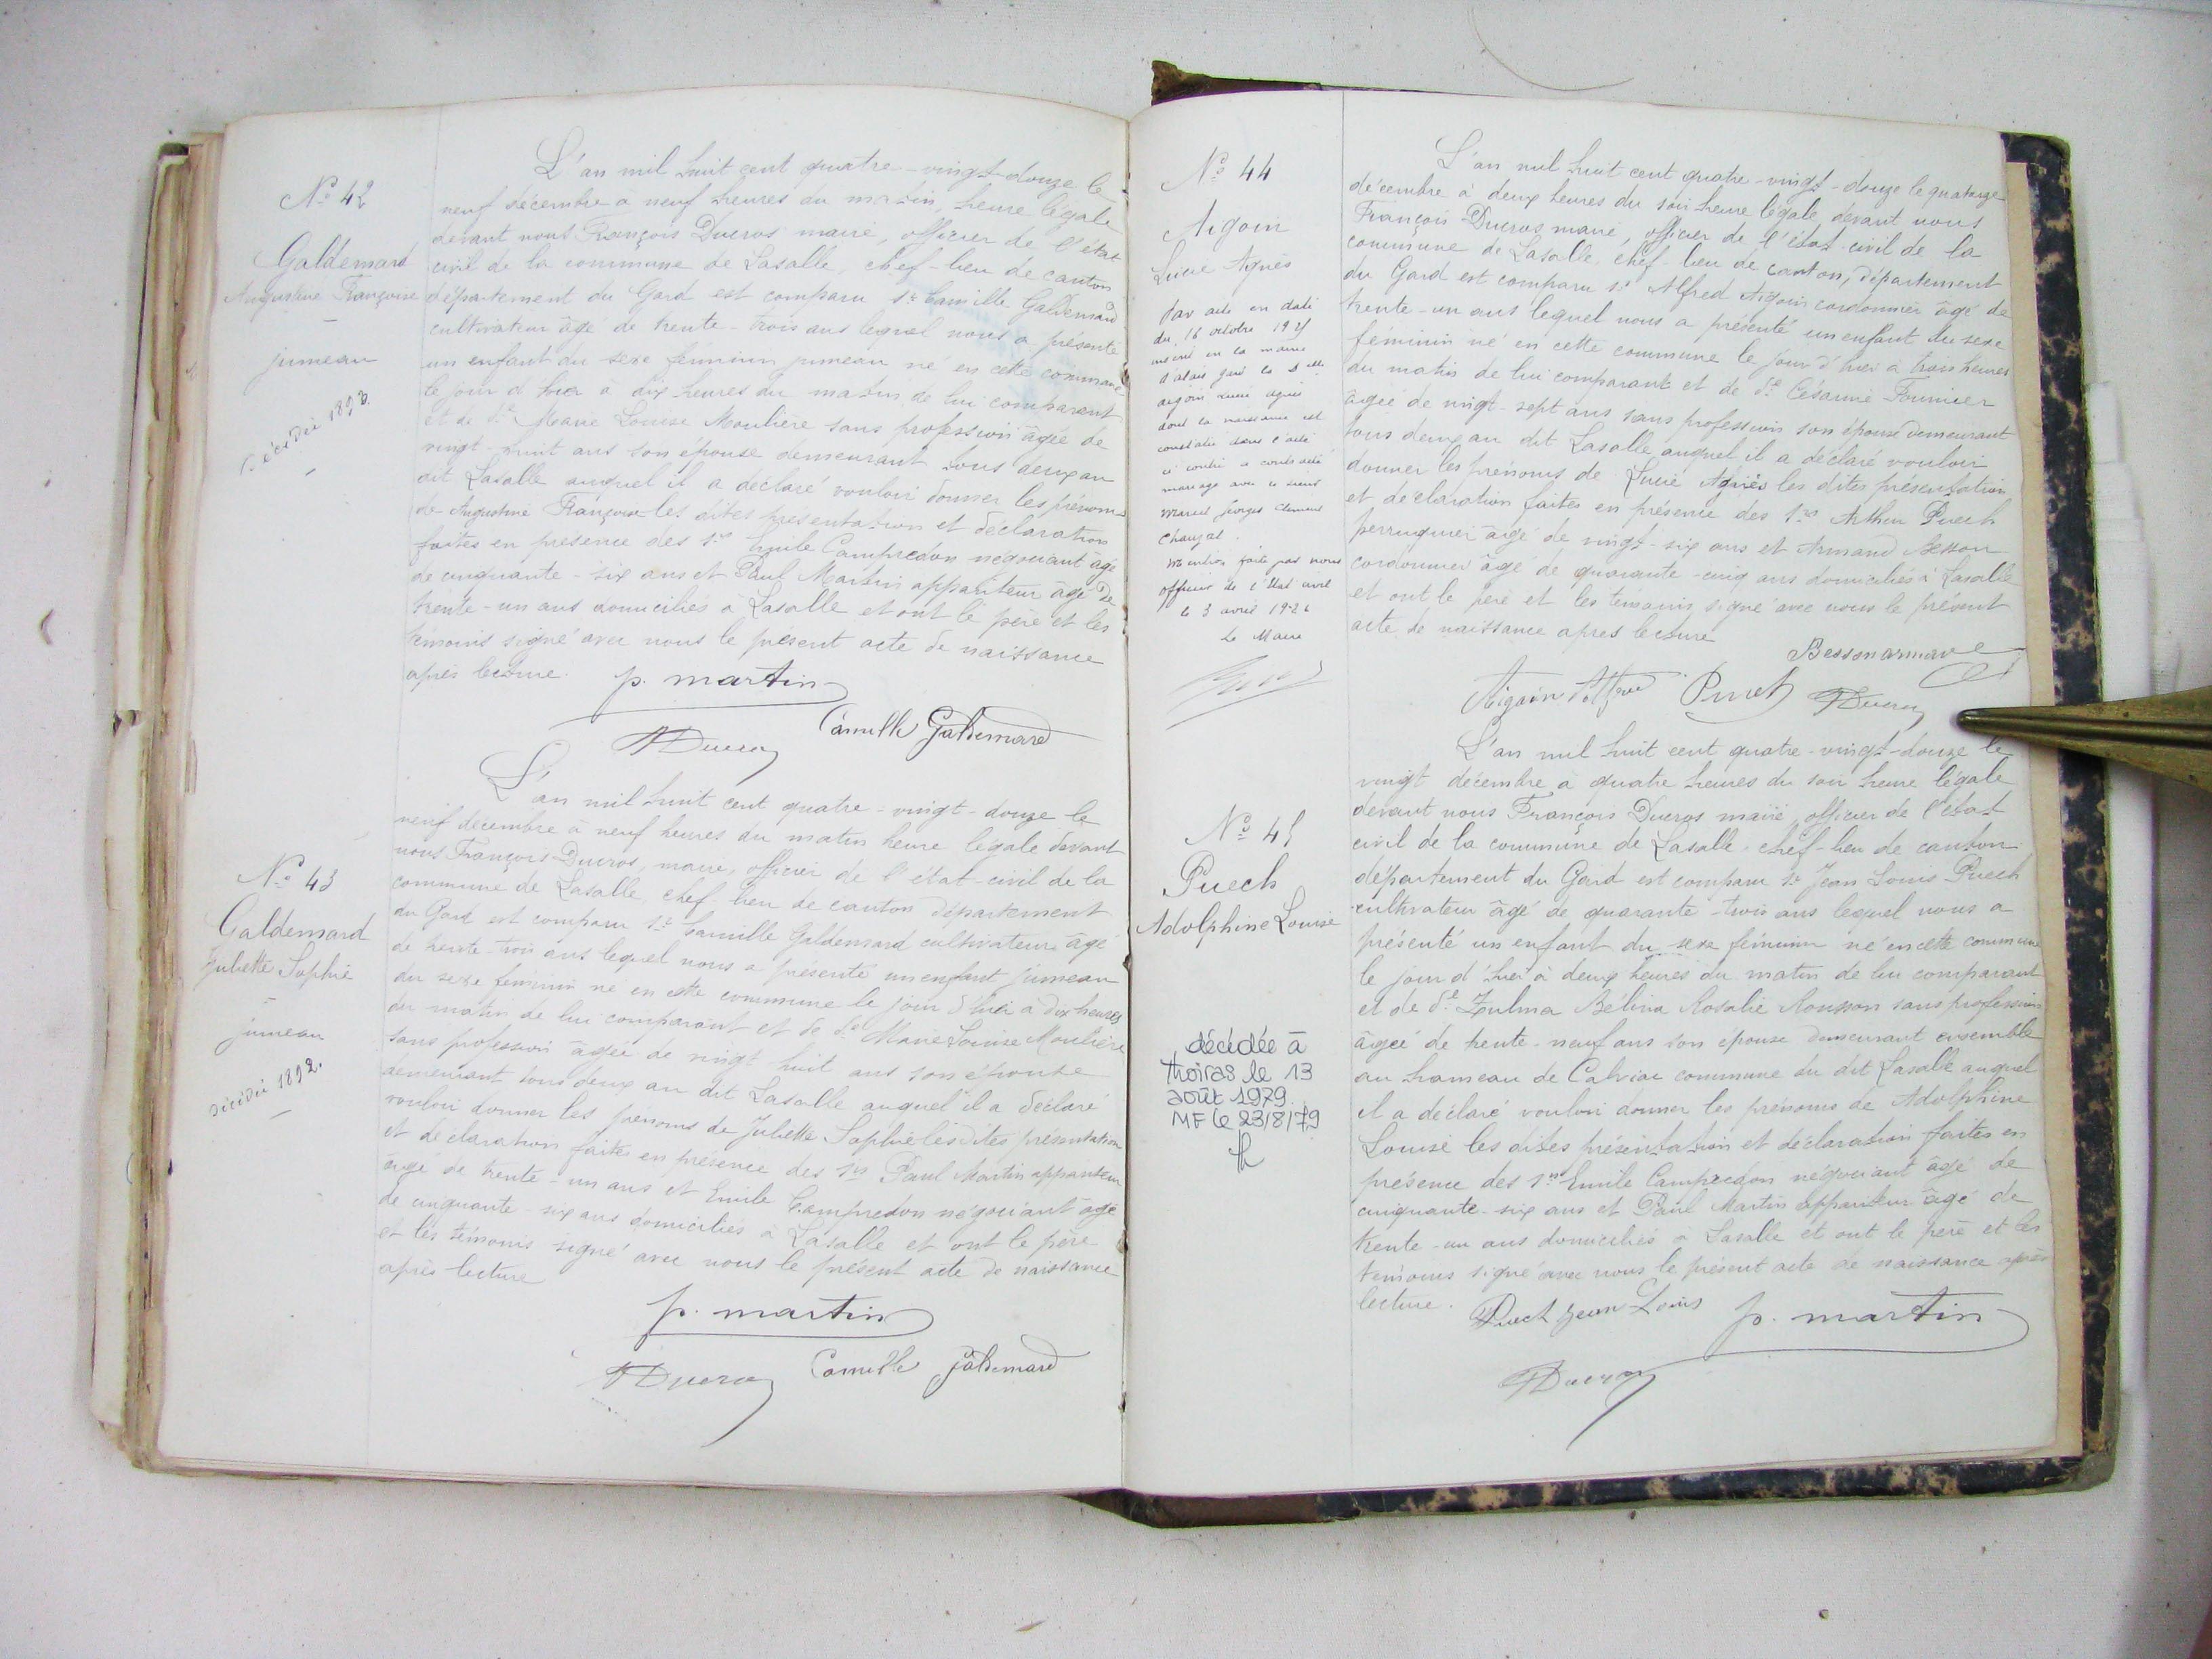 N° 42
Galdemard
Augustine Françoise
jumeau
décédée 1893.
L'an mil huit cent quatre-vingt-douze le
neuf décembre à neuf heures du matin, heure légale
devant nous François Ducros maire, officier de l'état
civil de la commune de Lasalle, chef-lieu de canton
département du Gard est comparu sr Camille Galdemard
cultivateur âgé de trente-trois ans lequel nous a présenté
un enfant du sexe féminin jumeau né en cette commune
le jour d'hier à dix heures du matin de lui comparant
et de de Marie Louise Moulière sans profession âgée de
vingt-huit ans son épouse demeurant tous deux au
dit Lasalle auquel il a déclaré vouloir donner les prénoms
de Augustine Françoise les dites présentation et déclaration
faites en présence des srs Emile Campredon négociant âgé
de cinquante-six ans et Paul Martin appariteur âgé de
trente-un ans domiciliés à Lasalle et ont le père et les
témoins signé avec nous le présent acte de naissance
après lecture.
p. martin
Camille Galdemard
FDucros
N° 43
Galdemard
Juliette Sophie
jumeau
décédée 1892.
L'an mil huit cent quatre-vingt-douze le
neuf décembre à neuf heures du matin heure légale devant
nous François Ducros, maire, officier de l'état-civil de la
commune de Lasalle, chef-lieu de canton département
du Gard est comparu sr Camille Galdemard cultivateur âgé
de trente-trois ans lequel nous a présenté un enfant jumeau
du sexe féminin né en cette commune le jour d'hier à dix heures
du matin de lui comparant et de de Marie Louise Moulière
sans profession âgée de vingt-huit ans son épouse
demeurant tous deux au dit Lasalle auquel il a déclaré
vouloir donner les prénoms de Juliette Sophie les dites présentation
et déclaration faites en présence des srs Paul Martin appariteur
âgé de trente-un ans et Emile Campredon négociant âgé
de cinquante-six ans domiciliés à Lasalle et ont le père
et les témoins signé avec nous le présent acte de naissance
après lecture
p. martin
FDucros Camille Galdemard
N° 44
Aigoin
Lucie Agnès
Par acte en date
du 16 octobre 1925
inscrit en la mairie
d'alais gard la delle
aigoin lucie agnès
dont la naissance est
constatée dans l'acte
ci contre a contracté
mariage avec le sieur
Marcel Georges Clement
Chauzal.
Mention faite par nous
officier de l'état civil
le 3 avril 1926
Le Maire
L'an mil huit cent quatre-vingt-douze le quatorze
décembre à deux heures du soir heure légale, devant nous
François Ducros, maire, officier de l'état-civil de la
commune de Lasalle, chef-lieu de canton, département
du Gard est comparu sr Alfred Aigoin cordonnier âgé de
trente-un ans lequel nous a présenté un enfant du sexe
féminin né en cette commune le jour d'hier à trois heures
du matin de lui comparant et de de Césarine Fournier
âgée de vingt-sept ans sans profession son épouse demeurant
tous deux au dit Lasalle, auquel il a déclaré vouloir
donner les prénoms de Lucie Agnès les dites présentation
et déclaration faites en présence des srs Arthur Puech
perruquier âgé de vingt-six ans et Armand Besson
cordonnier âgé de quarante-cinq ans domiciliés à Lasalle
et ont le père et les témoins signé avec nous le présent
acte de naissance après lecture
Bessonarmand
Aigoin Alfred Puech FDucros
N° 45
Puech
Adolphine Louise
décédée à
thoiras le 13
août 1979.
MF le 23/8/79
L'an mil huit cent quatre-vingt-douze le
vingt décembre à quatre heures du soir heure légale
devant nous François Ducros maire, officier de l'état
civil de la commune de Lasalle chef-lieu de canton
département du Gard est comparu sr Jean Louis Puech
cultivateur âgé de quarante-trois ans lequel nous a
présenté un enfant du sexe féminin né en cette commune
le jour d'hier à deux heures du matin de lui comparant
et de de Zulma Bélina Rosalie Rousson sans profession
âgée de trente-neuf ans son épouse demeurant ensemble
au hameau de Calviac commune du dit Lasalle auquel
il a déclaré vouloir donner les prénoms de Adolphine
Louise les dites présentation et déclaration faites en
présence des srs Emile Campredon négociant âgé de
cinquante-six ans et Paul Martin appariteur âgé de
trente-un ans domiciliés à Lasalle et ont le père et les
témoins signé avec nous le présent acte de naissance après
lecture.
Puech Jean Louis p. martin
FDucros